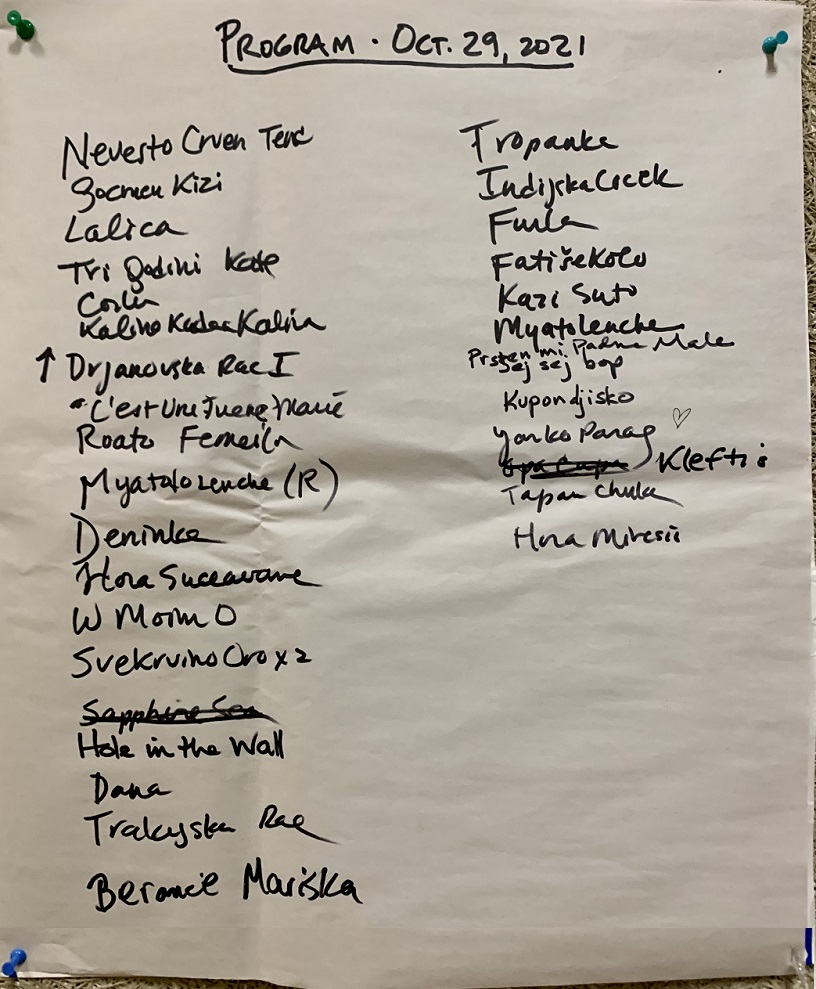 PROGRAM · OCT. 29, 2021
Nevesto Crven Tend
Gocmen Kizi
Lalica
Tri Godini Kate
Kalino Kadae Kalin
↑ Drjanovska Rac I
"C'est Une Juene Marié
Roata Femeilr
Myatalo Lenche (R)
Deninka
Hora Suceavane
W Moim O
Svekrvino Oro x 2
Sapphire Sea
Hole in the Wall
Dana
Trakyska Rae
Berance Mariska
Tropanka
Indijska Cocek
Furla
Fatiše Kolo
Kazi Suto
Myatolenche
Prsten mi Padna Male
Sej sej bop
Kupondjisko
Yanko Parag ♡
Klefti :
Tapan Chuka
Hora Miresii